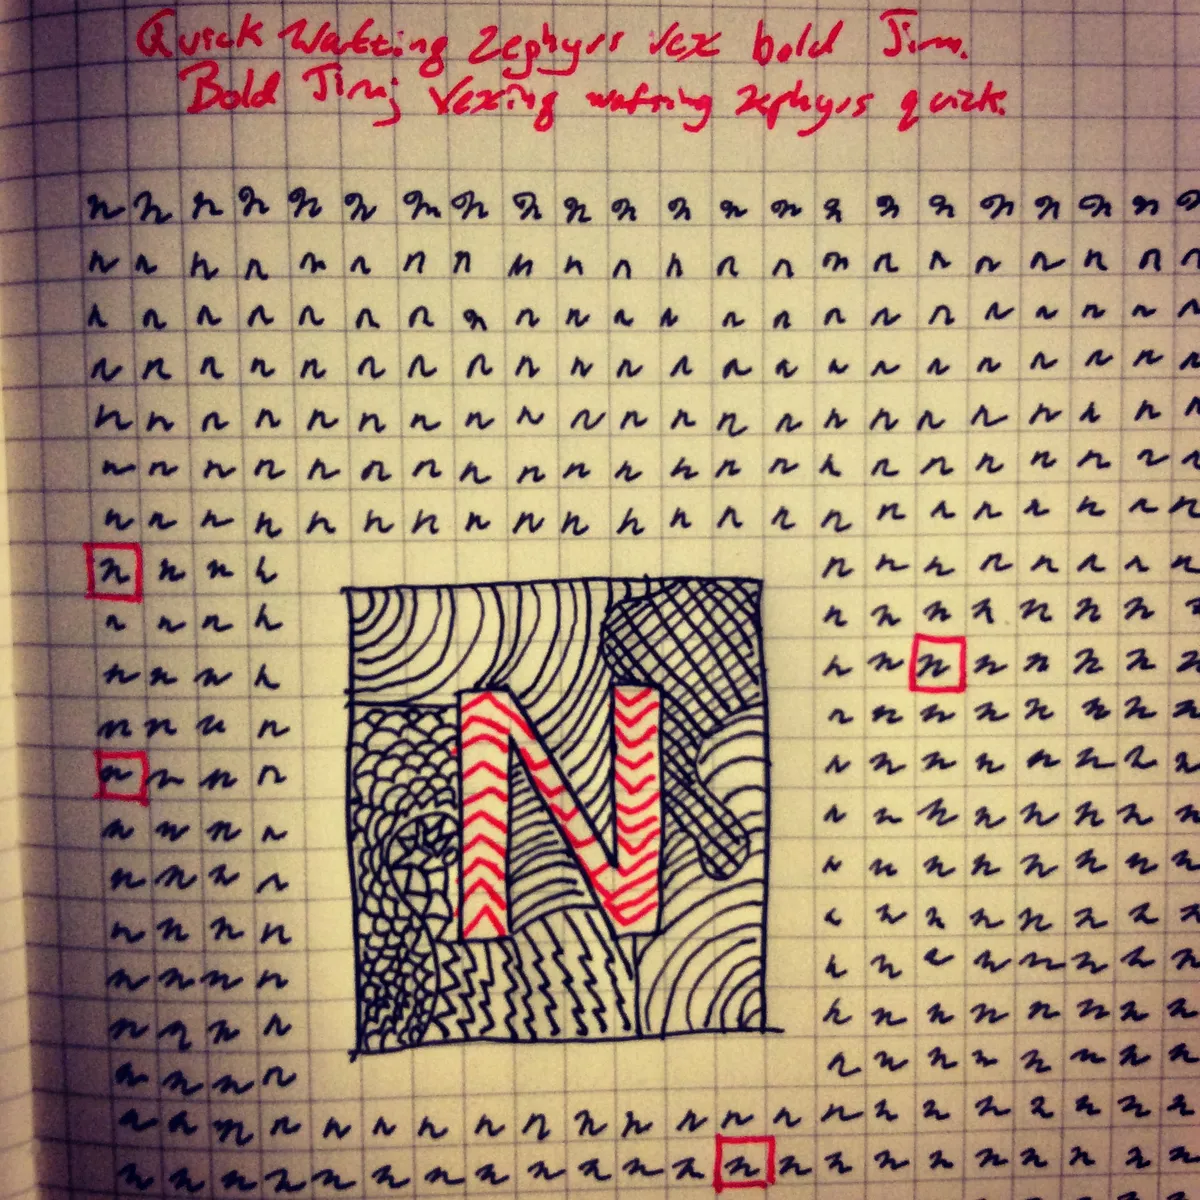 Quick Wafting Zephyrs vex bold Jim.
Bold Jim; Vexing wafting zephyrs quick.
n n n n n n n n n n n n n n n n n n n n n n
n n n n n n n n n n n n n n n n n n n n n n
n n n n n n n n n n n n n n n n n n n n n n
n n n n n n n n n n n n n n n n n n n n n n
n n n n n n n n n n n n n n n n n n n n n n
n n n n n n n n n n n n n n n n n n n n n n
n n n n n n n n n n n n n n n n n n n n n n
n n n n n n n n n n n n
n n n n n n n n n n n n
n n n n n n n n n n n n
n n n n n n n n n n n n
n n n n n n n n n n n n
N
n n n n n n n n n n n n
n n n n n n n n n n n n
n n n n n n n n n n n n
n n n n n n n n n n n n
n n n n n n n n n n n n
n n n n n n n n n n n n
n n n n n n n n n n n n n n n n n n n n n n
n n n n n n n n n n n n n n n n n n n n n n